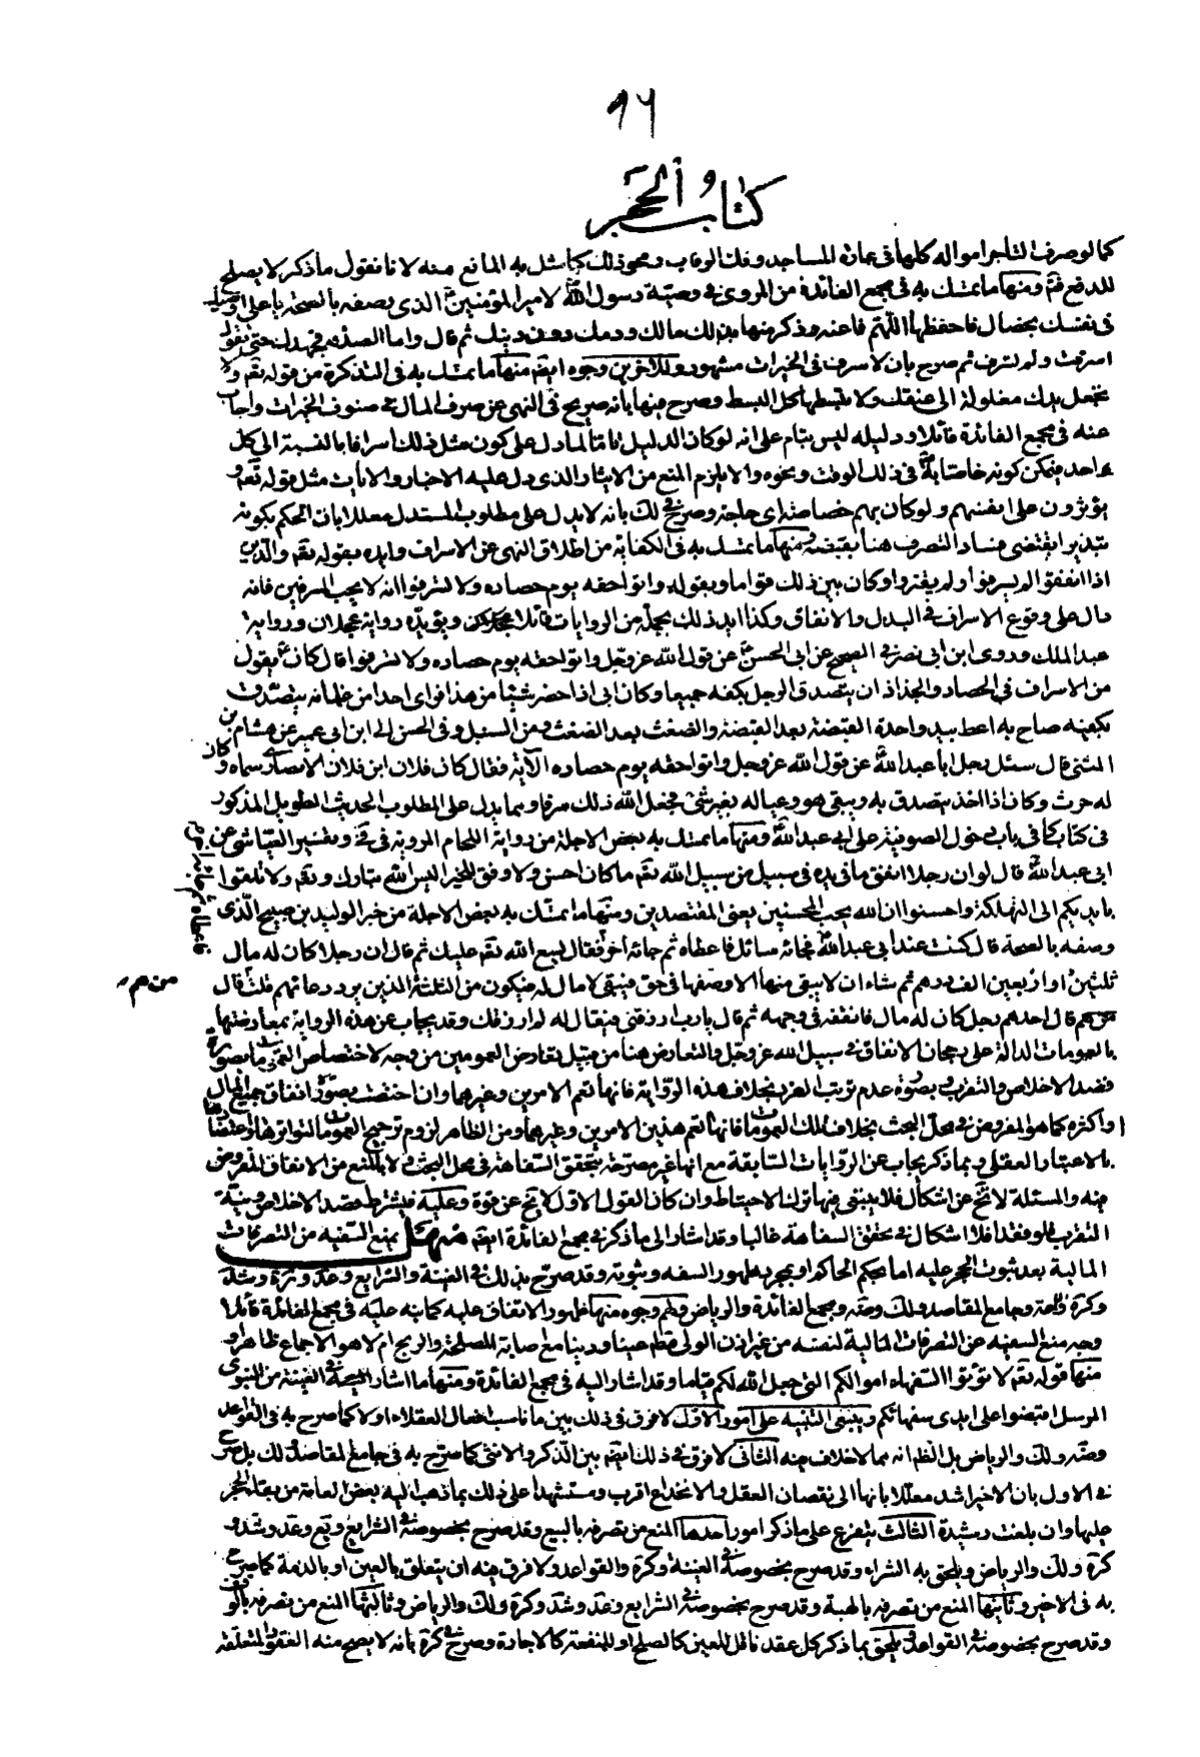 ٩٦
كتاب الحجر
كما لو صرف التاجر امواله كلها فى عمارة المساجد وفك الرقاب ونحو ذلك كما مثل به المانع منه لانا نقول ما ذكر لا يصلح
للدفع فتم ومنها ما تمسك به فى مجمع الفائدة من المروى فى وصية رسول الله لامير المؤمنين الذى يصفه بالصحة يا على اوصيك
فى نفسك بخصال فاحفظها اللهم فاعنه وذكر منها بذلك مالك ودمك دون دينك ثم قال واما الصدقة فجهدك حتى تقول
اسرفت ولم تسرف ثم صرح بان لا سرف فى الخيرات مشهور وللاخرين وجوه ايضم منها ما تمسك به فى التذكرة من قوله تعم ولا
تجعل يدك مغلولة الى عنقك ولا تبسطها كل البسط وصرح منها بانه صريح فى النهى عن صرف المال فى صنوف الخيرات واجاب
عنه فى مجمع الفائدة قائلا ودليله ليس بتام على انه لو كان الدليل تاما لما دل على كون مثل ذلك اسرافا بالنسبة الى كل
واحد فيمكن كونه خاصا به فى ذلك الوقت ونحوه والا يلزم المنع من الايثار الذى دل عليه الاخبار والايات مثل قوله تعم و
يؤثرون على انفسهم ولو كان بهم خصاصة اى حاجة وصرح فى لك بانه لا يدل على مطلوب المستدل معللا بان الحكم بكونه
تبذيرا يقتضى فساد التصرف هنا بقبضه ومنها ما تمسك به فى الكفاية من اطلاق النهى عن الاسراف وايده بقوله تعم والذين
اذا انفقوا لم يسرفوا ولم يقتروا وكان بين ذلك قواما وبقوله واتوا حقه يوم حصاده ولا تسرفوا انه لا يحب المسرفين فانه
دال على وقوع الاسراف فى البذل والانفاق وكذا ايد ذلك بجملة من الروايات قائلا ويؤيده رواية عجلان ورواية
عبد الملك وروى ابن ابى نصر فى الصحيح عن ابى الحسن عن قول الله عز وجل واتوا حقه يوم حصاده ولا تسرفوا قال كان يقول
من الاسراف فى الحصاد والجذاذ ان يتصدق الرجل بكفيه جميعا وكان ابى اذا حضر شيئا من هذا فراى احدا من غلمانه يتصدق
بكفيه صاح به اعط بيد واحدة القبضة بعد القبضة والضغث بعد الضغث من السنبل وفى الحسن الى ابن ابى عمير عن هشام بن
المثنى قال سئل رجل ابا عبد الله عن قول الله عز وجل واتوا حقه يوم حصاده الآية فقال كان فلان ابن فلان الانصارى سماه وكان
له حرث وكان اذا اخذ يتصدق به ويبقى هو وعياله بغير شئ فجعل الله ذلك سرفا ومما يدل على المطلوب الحديث الطويل المذكور
فى كتاب كافى باب دخول الصوفية على ابى عبد الله ومنها ما تمسك به بعض الاجلة من رواية اللحام المروية فى فى وتفسير العياشى عن
ابى عبد الله قال لو ان رجلا انفق ما فى يده فى سبيل من سبيل الله تعم ما كان احسن ولا وفق للخير اليس الله تبارك وتعم ولا تلقوا
بايديكم الى التهلكة واحسنوا ان الله يحب المحسنين يعنى المقتصدين ومنها ما تمسك به بعض الاجلة من خبر الوليد بن صبيح الذى
وصفه بالصحة قال كنت عند ابى عبد الله فجائه سائل فاعطاه ثم جائه اخر فقال يسع الله تعم عليك ثم قال ان رجلا كان له مال
ثلثين او اربعين الف درهم ثم شاء ان لا يبقى منها الا وضعها فى حق فيبقى لا مال له فيكون من الثلثة الذين يرد دعائهم قلت قال
من هم قال احدهم رجل كان له مال فانفقه فى وجهه ثم قال يا رب ارزقنى فيقال له لم ارزقك وقد يجاب عن هذه الرواية بمعارضتها
بالعمومات الدالة على رجحان الانفاق فى سبيل الله عز وجل والتعارض هنا من قبيل تعارض العمومين من وجه لاختصاص العمومات بصورة
قصد الاخلاص والتقرب بصورة عدم ترتب الضرر بخلاف هذه الرواية فانها تعم الامرين وغيرهما وان اختصت بصورة انفاق جميع المال
او اكثره كما هو المفروض فى محل البحث بخلاف تلك العمومات فانها تعم هذين الامرين وغيرهما ومن الظاهر لزوم ترجيح العمومات لتواترها واعتضادها
بالاعتبار العقلى وبما ذكر يجاب عن الروايات السابقة مع انها غير صريحة بتحقق السفاهة فى محل البحث ولا بالمنع من الانفاق المفروض
فيه والمسئلة لا تخ عن اشكال فلا ينبغى فيها ترك الاحتياط وان كان القول الاول لا يخ عن قوة وعليه فيشترط قصد الاخلاص ونية
التقرب فلو فقد افلا اشكال فى تحقق السفاهة غالبا وقد اشار الى ما ذكر فى مجمع الفائدة ايضم منهل يمنع السفيه من التصرفات
المالية بعد ثبوت الحجر عليه اما بحكم الحاكم او بمجرد ظهور السفه وثبوته وقد صرح بذلك فى الغنية والشرايع وعد وتره وشد
وكره وجامع المقاصد ولك وضه ومجمع الفائدة والرياض ولهم وجوه منها ظهور الاتفاق عليه كما نبه عليه فى مجمع الفائدة قائلا
وجه منع السفيه عن التصرفات المالية لنفسه من غير اذن الولى مطلم عينا ودينا مع اصابة المصلحة والربح ام لا هو الاجماع ظاهرا و
منها قوله تعم لا تؤتوا السفهاء اموالكم التى جعل الله لكم قياما وقد اشار اليه فى مجمع الفائدة ومنها ما اشار اليه فى الغنية من النبوى
المرسل اقبضوا على ايدى سفهائكم وينبغى التنبيه على امور الاول لا فرق فى ذلك بين ما ناسب افعال العقلاء او لا كما صرح به فى القواعد
وضه ولك والرياض بل الظم انه مما لا خلاف فيه الثانى لا فرق فى ذلك ايضم بين الذكر والانثى كما صرح به فى جامع المقاصد ولك بل صرح
فى الاول بان الاخير اشد معللا بانها الى نقصان العقل والانخداع اقرب ومستشهدا على ذلك بما ذهب اليه بعض العامة من بقاء الحجر
عليها وان بلغت رشيدة الثالث يتفرع على ما ذكر امور احدها المنع من تصرفه بالبيع وقد صرح بخصوصه فى الشرايع وفع وعد وشد و
كره ولك والرياض ويلحق به الشراء وقد صرح بخصوصه فى الغنية وكره والقواعد ولا فرق فيه ان يتعلق بالعين او بالذمة كما صرح
به فى الاخير وثانيها المنع من تصرفه بالهبة وقد صرح بخصوصه فى الشرايع وعد وشد وكره ولك والرياض وثالثها المنع من تصرفه بالوقف
وقد صرح بخصوصه فى القواعد ويلحق بما ذكر كل عقد ناقل للعين كالصلح او للمنفعة كالاجارة وصرح فى كره بانه لا يصح منه العقود المتعلقة
من هم